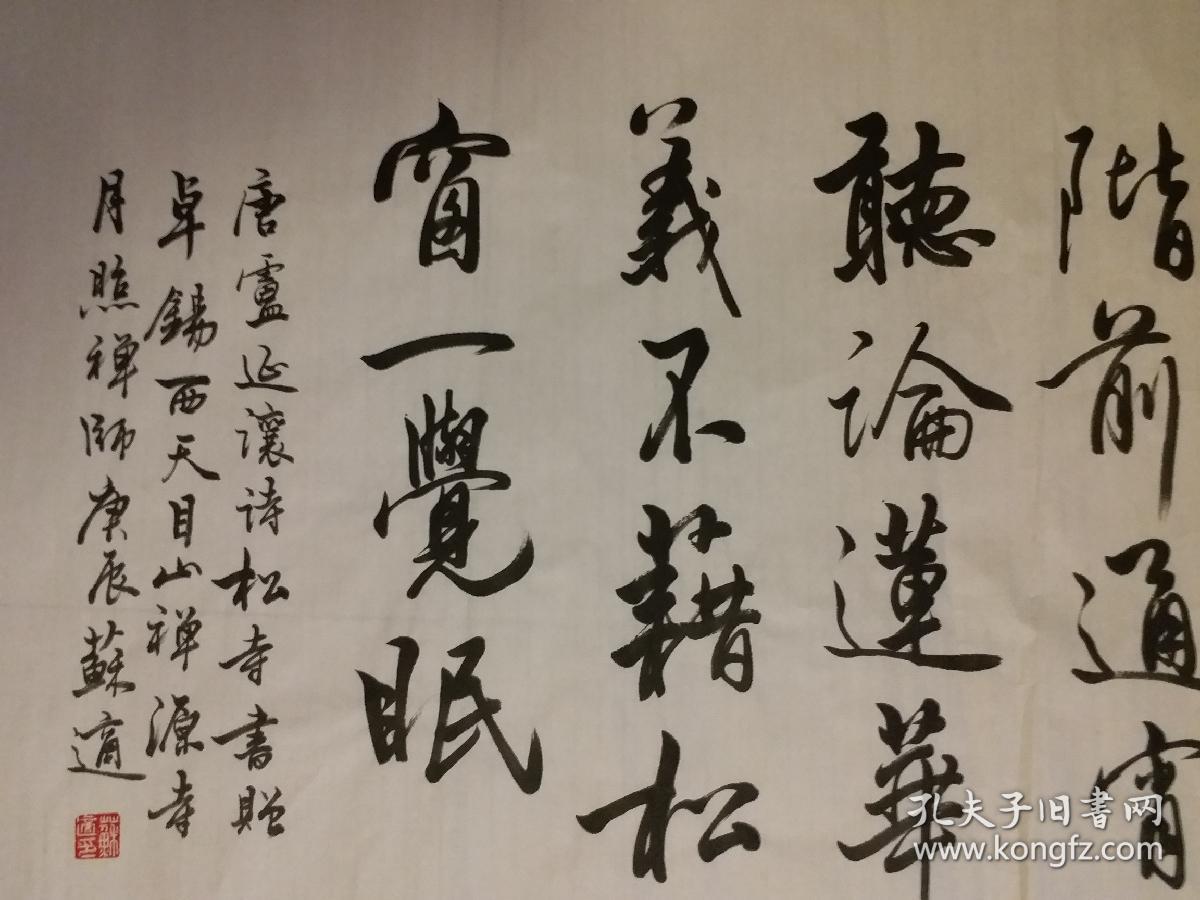 階前通宵
聽論蓮華
義不藉松
窗一覺眠
唐盧延讓诗松寺書贈
卓錫西天目山禅源寺
月照禅師庚辰蘇適
孔夫子旧書网
www.kongfz.com